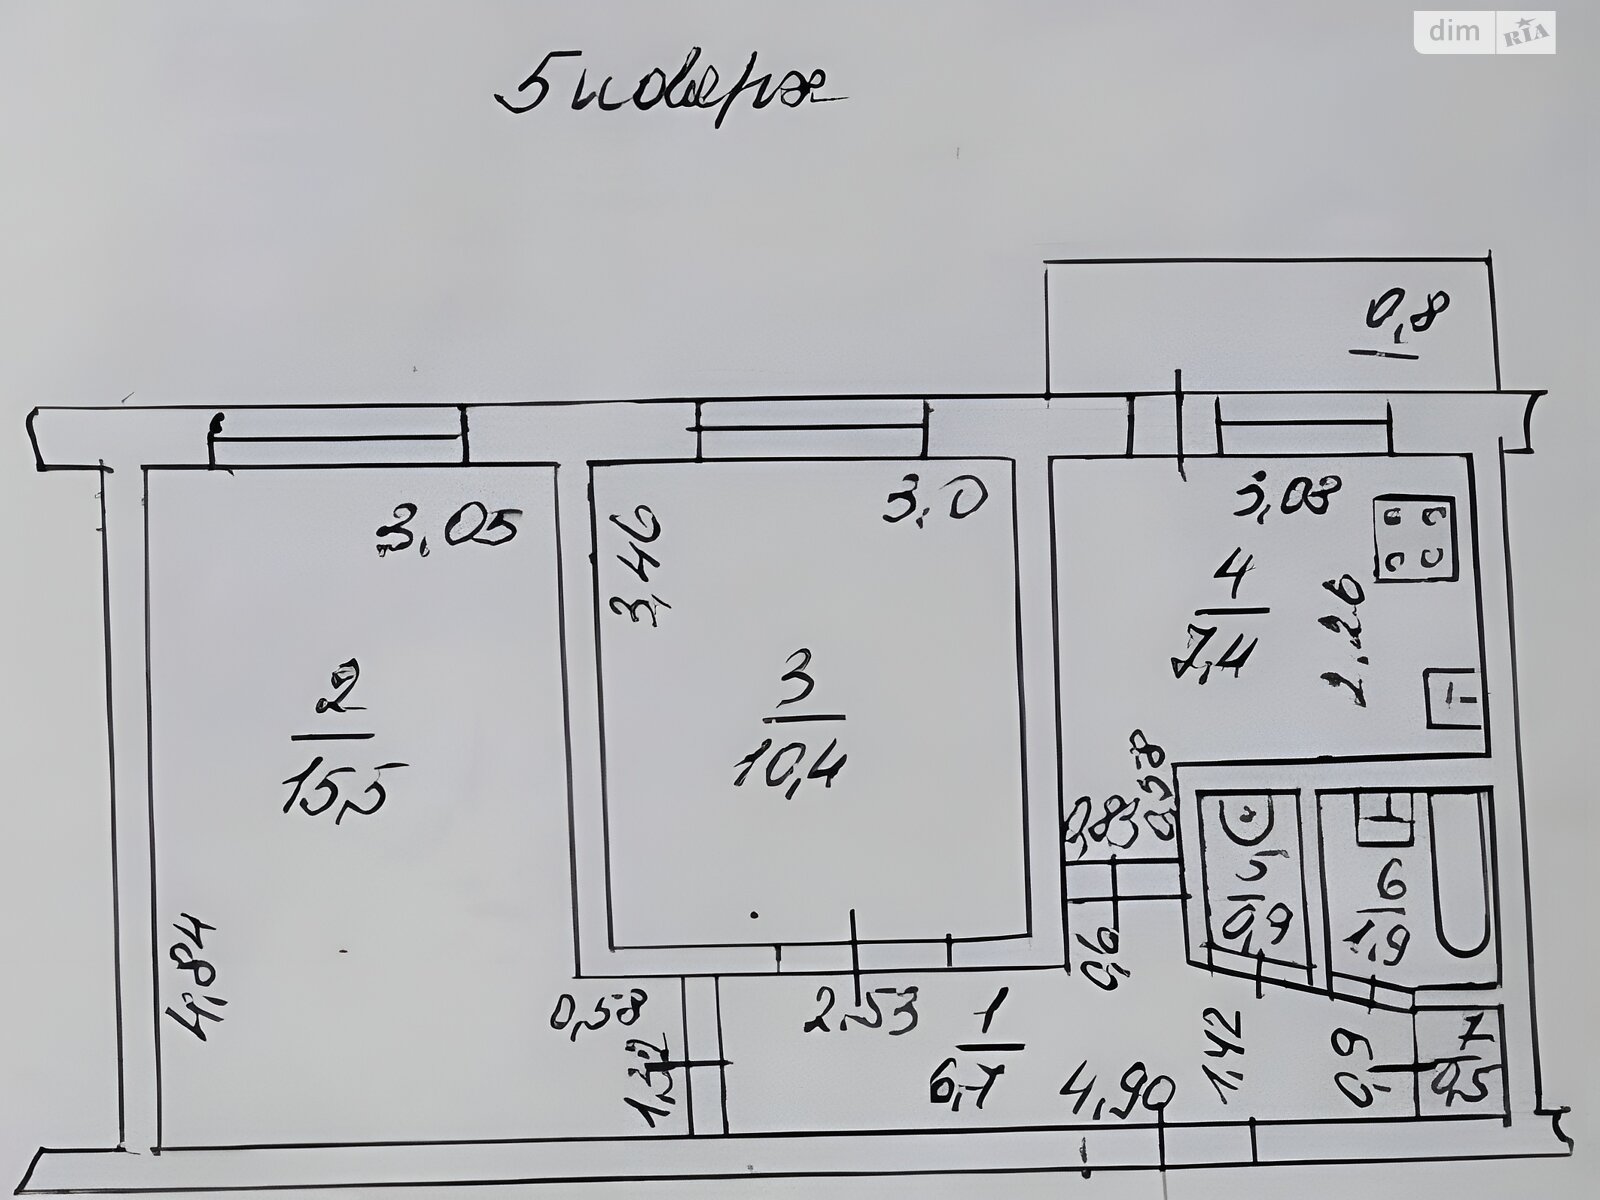 dim RIA
5 поверх
0,8
3,05
3,0
3,03
3,46
4
7,4
2.26
2
15,5
3
10,4
0,83
0,58
5
0,9
6
1,9
4,84
0,6
0,58
2.53
1
6,7
1.32
4,90
1,42
0,9
7
0,5